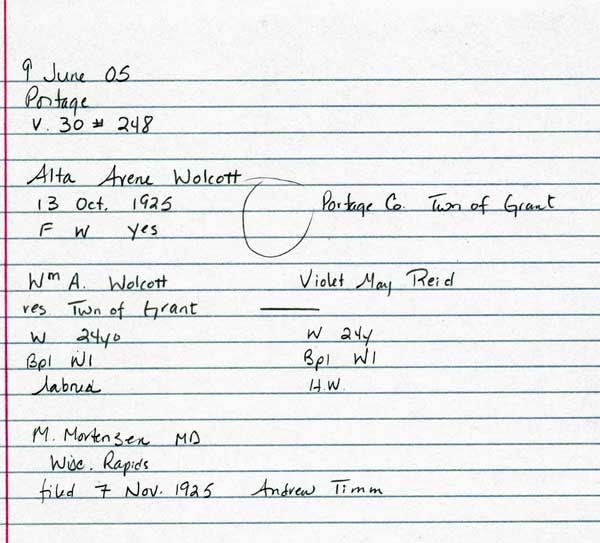 9 June 05
Portage
V. 30 # 248
Alta Arene Wolcott
13 Oct. 1925 Portage Co. Twn of Grant
F W yes
Wm A. Wolcott Violet May Reid
res Twn of Grant
W 24yo W 24y
Bpl WI Bpl WI
H.W.
M. Mortensen MD
Wisc. Rapids
filed 7 Nov. 1925 Andrew Timm